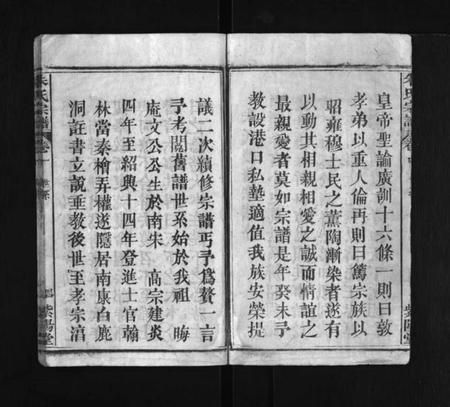 朱氏宗譜
皇帝聖諭廣訓十六條一則曰敦
孝弟以重人倫再則曰篤宗族以
昭雍穆士民之薰陶漸染者遂有
以動其相親相愛之誠而情誼之
最親愛者莫如宗譜是年癸未予
教設港口私塾適值我族安榮提
紫陽堂
議二次續修宗譜丐予為贅一言
予考閱舊譜世系始於我祖 晦
庵文公公生於南宋 高宗建炎
四年至紹興十四年登進士官翰
林當秦檜弄權遂隱居南康白鹿
洞註書立說垂教後世至孝宗淳
朱氏宗譜
紫陽堂